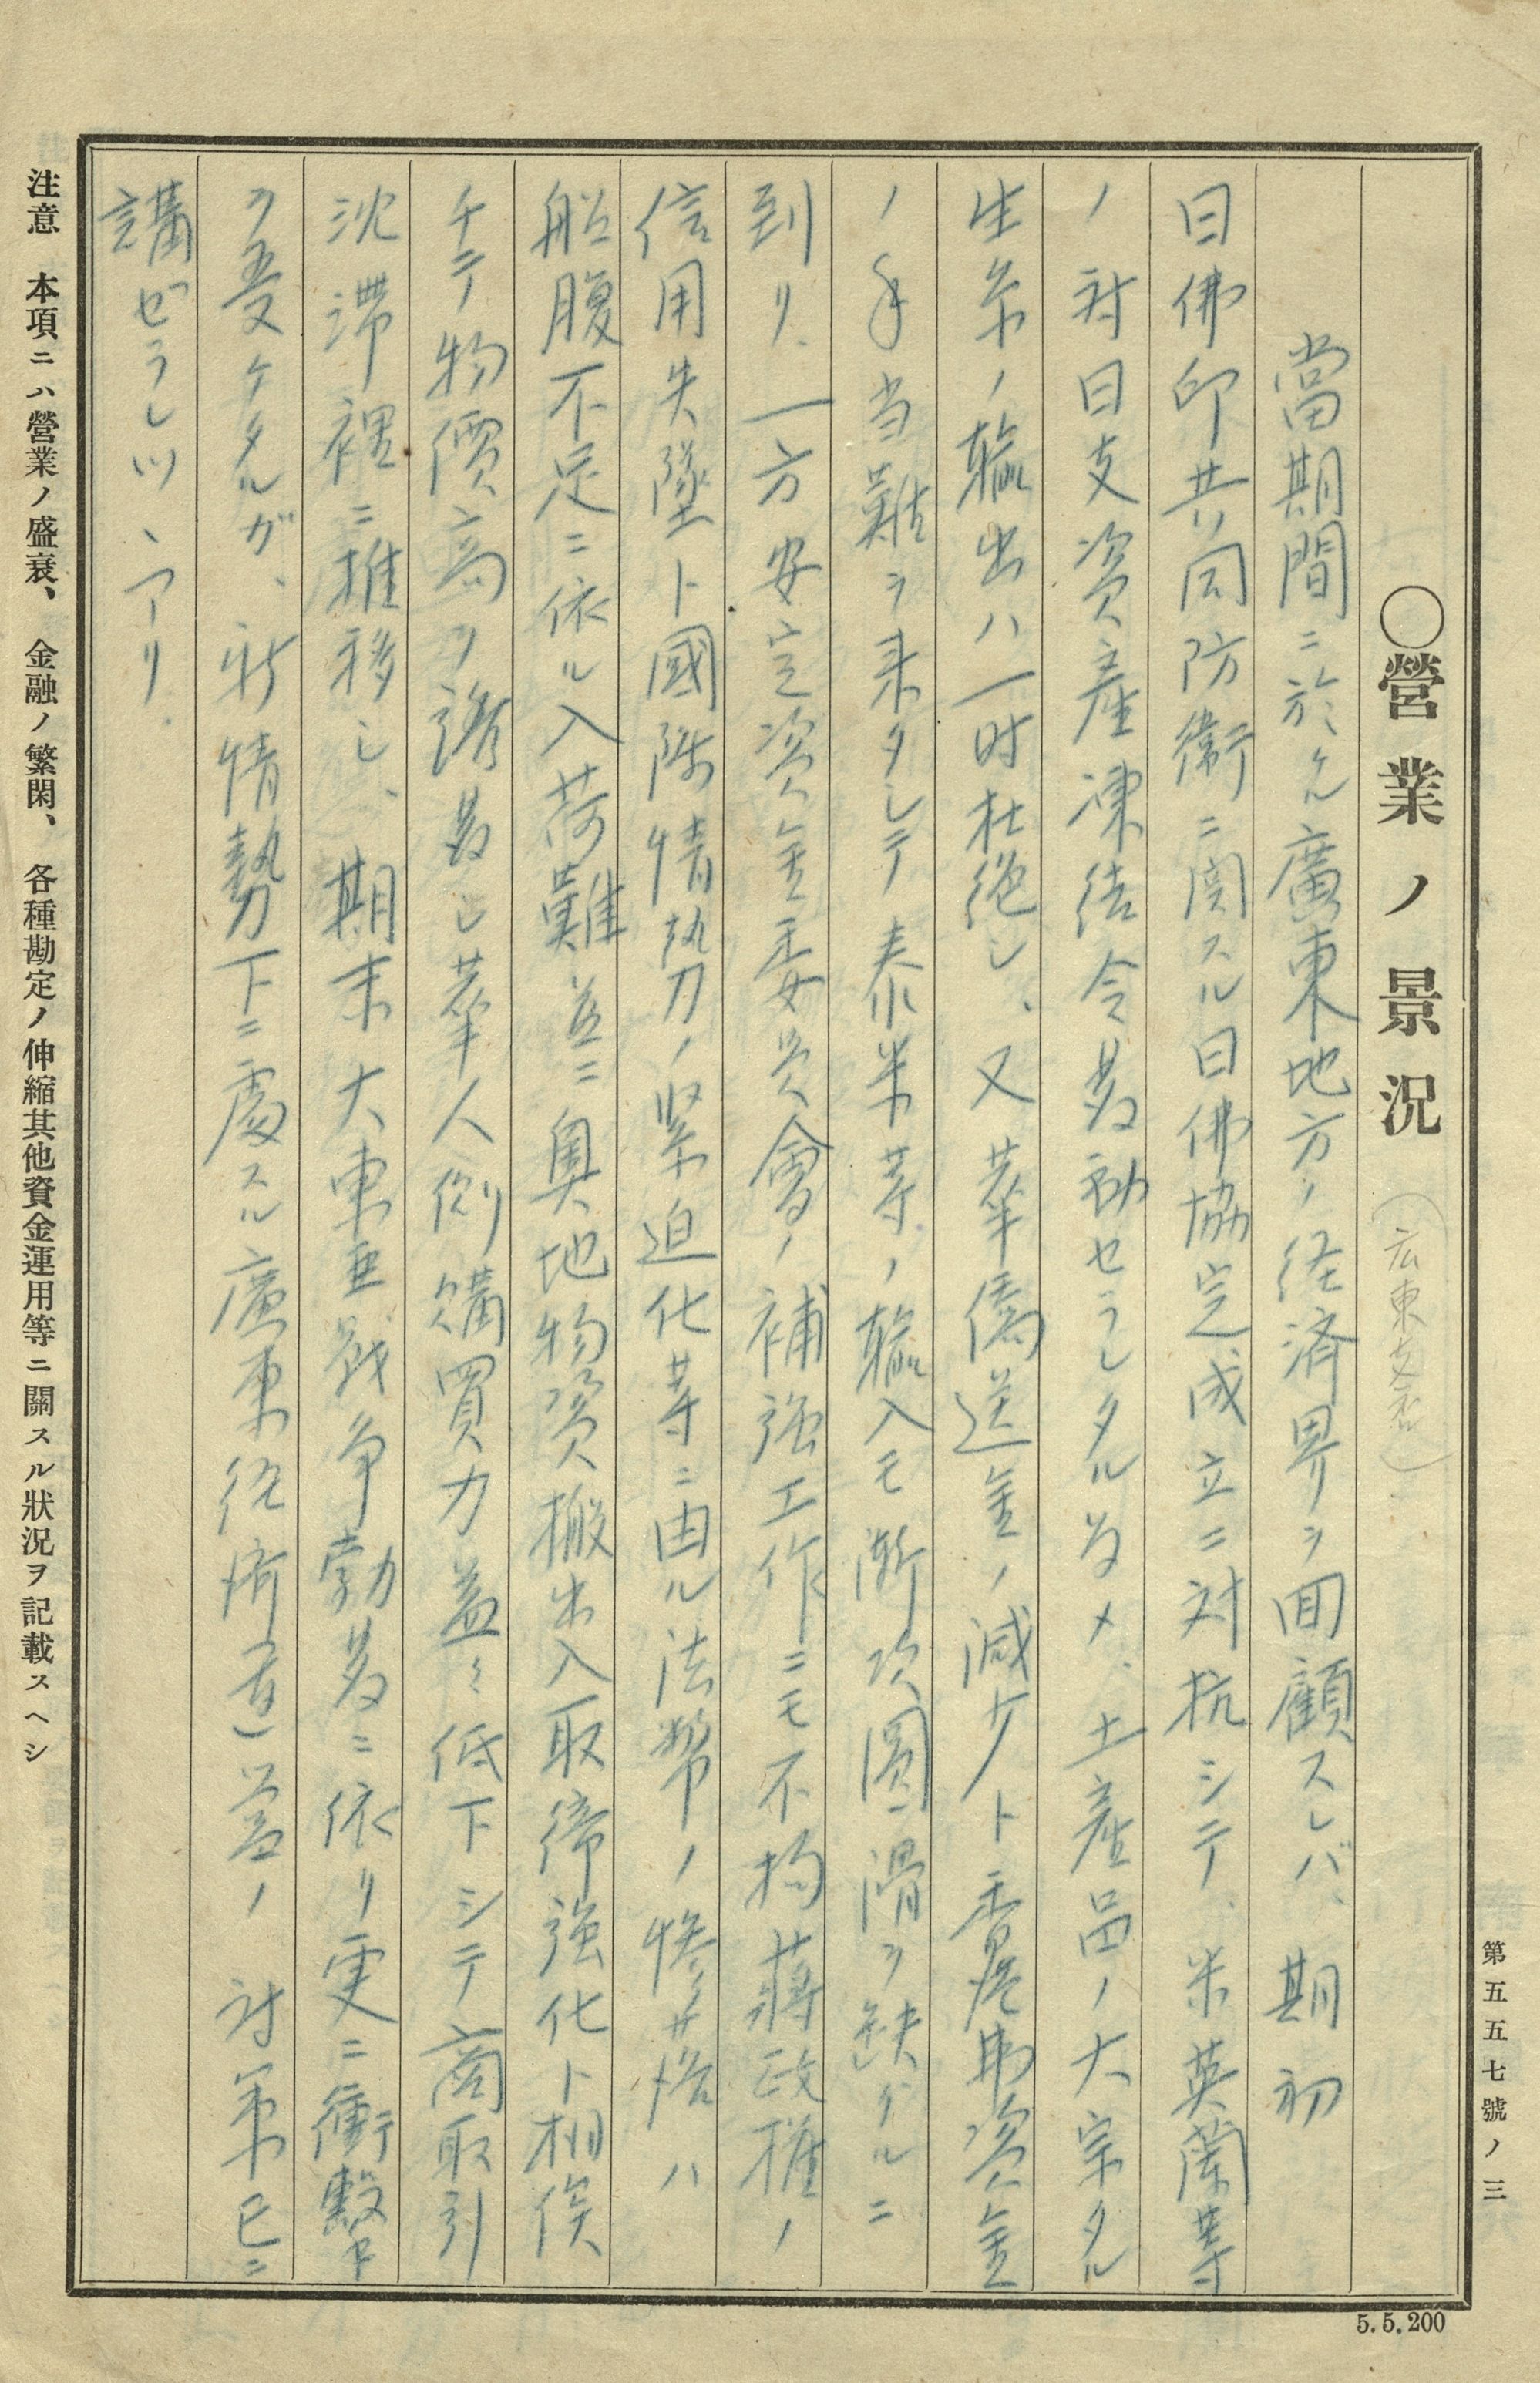 第五五七號ノ三
◯營業ノ景況(広東支店)
當期間ニ於ケル廣東地方ノ経済界ヲ回顧スレバ、期初
日佛印共同防衛ニ関スル日佛協定成立ニ対抗シテ、米英蘭等
ノ対日支資産凍結令発動セラレタル為メ、土産品ノ大宗タル
生糸ノ輸出ハ一時杜絶シ、又華僑送金ノ減少ト香港弗資金
ノ手当難ヲ来タシテ泰米等ノ輸入モ漸次圓滑ヲ缺クルニ
到リ、一方安定資金委員會ノ補強工作ニモ不拘蒋政権ノ
信用失墜ト國際情勢ノ緊迫化等ニ由ル法幣ノ惨落ハ
船腹不足ニ依ル入荷難並ニ奥地物資搬出入取締強化ト相俟
チテ物價高ヲ誘發シ華人側購買力益々低下シテ商取引
沈滞裡ニ推移シ、期末大東亜戦争勃発ニ依リ更ニ衝撃
ヲ受ケタルガ、新情勢下ニ處スル廣東経済建直ノ対策已ニ
講ゼラレツヽアリ.
注意 本項ニハ營業ノ盛衰、金融ノ繁閑、各種勘定ノ伸縮其他資金運用等ニ關スル狀況ヲ記載スヘシ
5.5.200